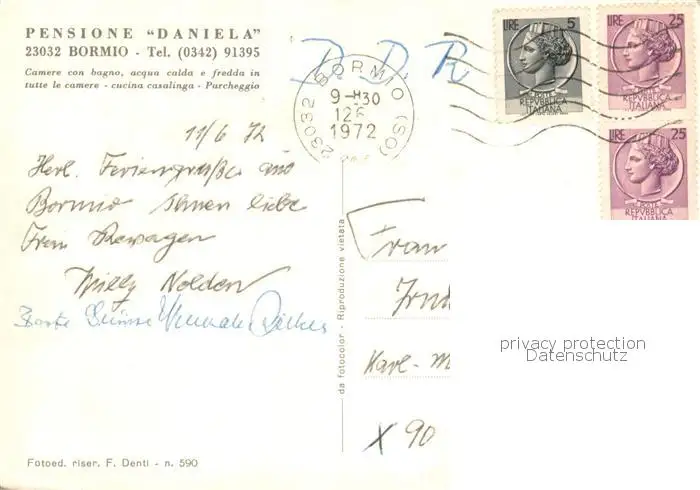 PENSIONE "DANIELA"
23032 BORMIO - Tel. (0342) 91395
Camere con bagno, acqua calda e fredda in
tutte le camere - cucina casalinga - Parcheggio
DDR
23032 BORMIO (SO)
9-10 30
12 6
1972
LIRE 5
POSTE
REPVBBLICA
ITALIANA
LIRE 25
POSTE
REPVBBLICA
ITALIANA
LIRE 25
POSTE
REPVBBLICA
ITALIANA
11/6 72
Herl. Feriengrüße aus
Bormio Ihnen liebe
Frau
Willy Nolden
Beste Grüsse
da fotocolor - Riproduzione vietata
Frau
Karl-M
X 90
privacy protection
Datenschutz
Fotoed. riser. F. Denti - n. 590